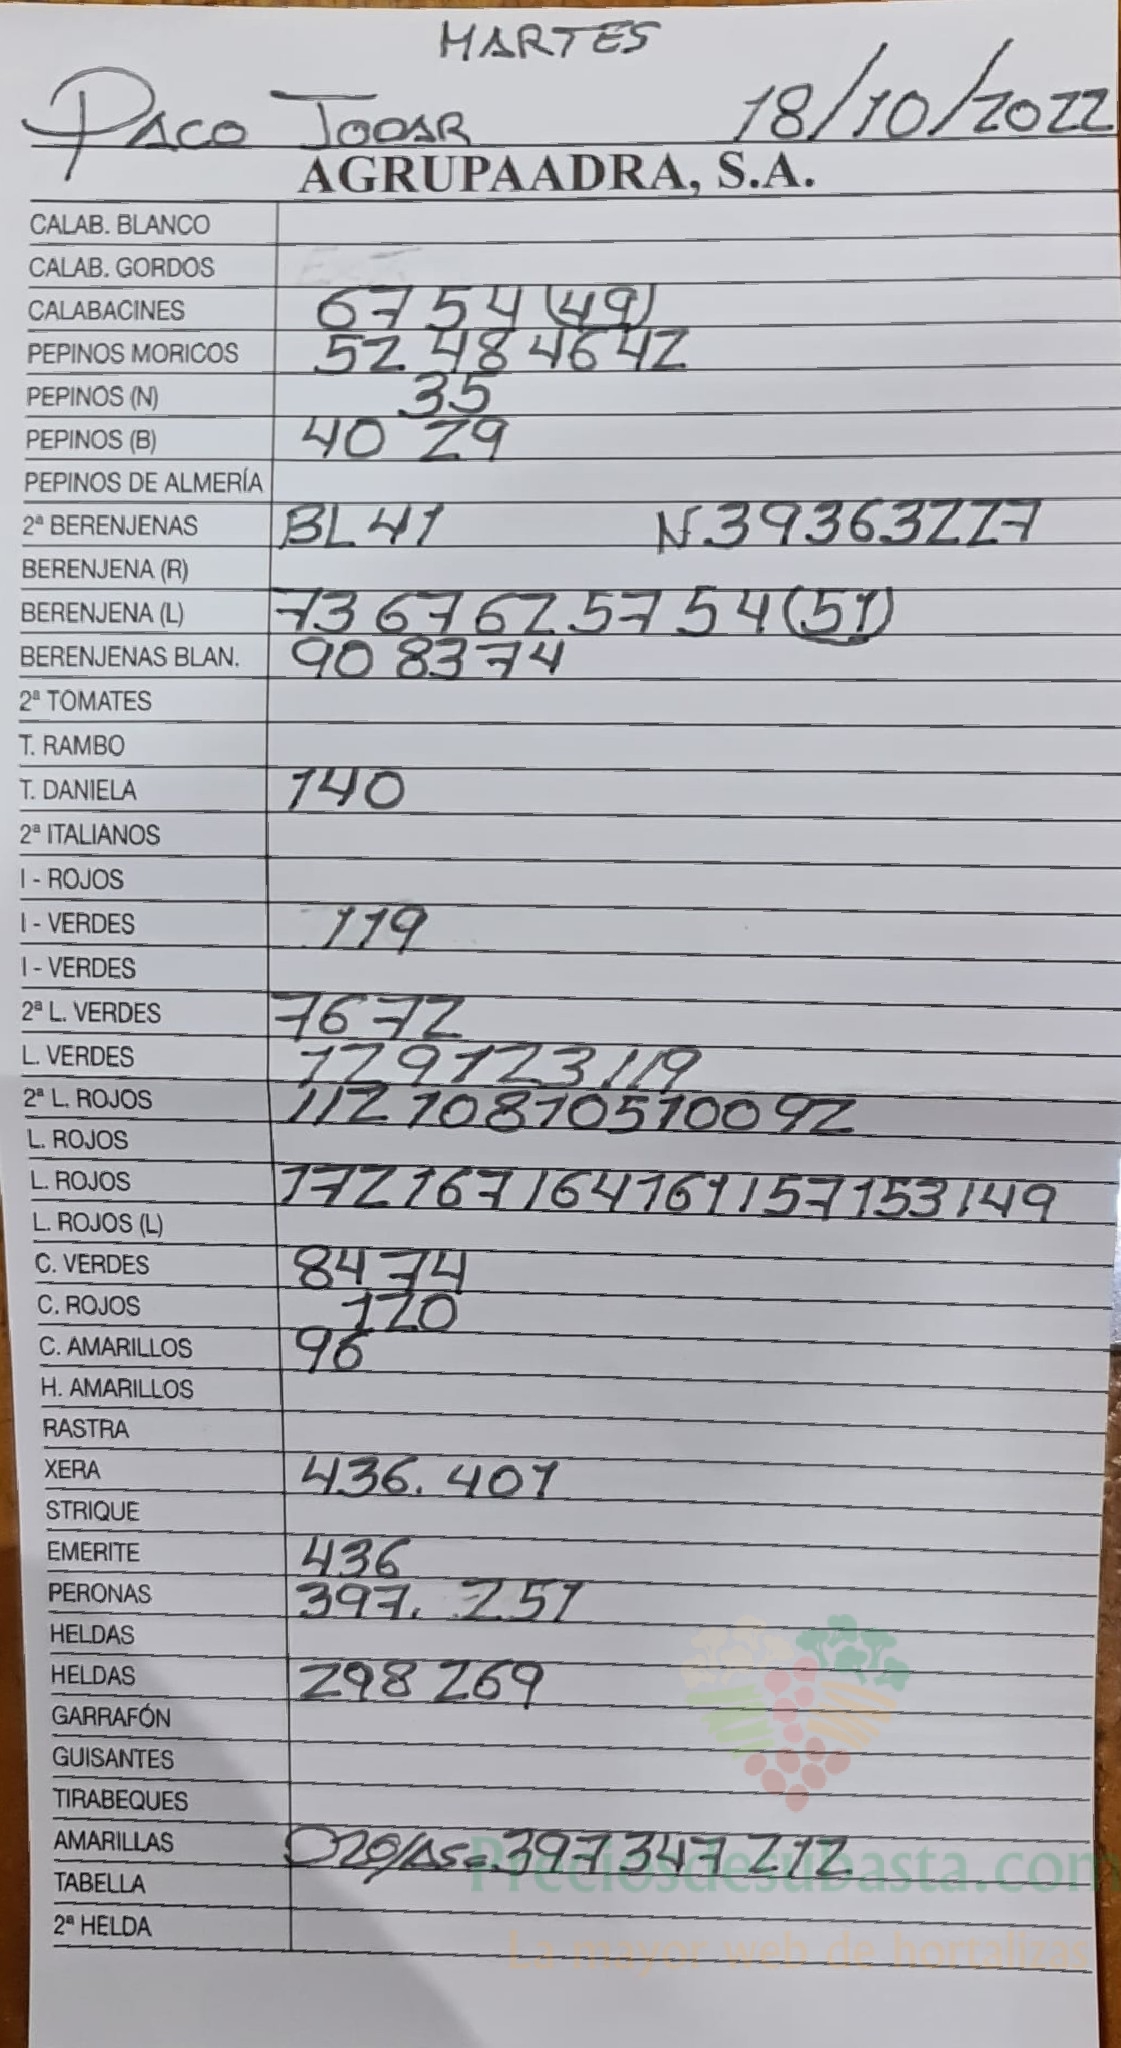 MARTES
PACO JODAR 18/10/2022
AGRUPAADRA, S.A.
CALAB. BLANCO
CALAB. GORDOS
CALABACINES 67 54 (49)
PEPINOS MORICOS 52 48 46 42
PEPINOS (N) 35
PEPINOS (B) 40 29
PEPINOS DE ALMERÍA
2ª BERENJENAS BL 41 N.39 36 32 27
BERENJENA (R)
BERENJENA (L) 73 67 62 57 54 (51)
BERENJENAS BLAN. 90 83 74
2ª TOMATES
T. RAMBO
T. DANIELA 140
2ª ITALIANOS
I - ROJOS
I - VERDES 119
I - VERDES
2ª L. VERDES 76 72
L. VERDES 129 123 119
2ª L. ROJOS 112 108 105 100 92
L. ROJOS
L. ROJOS 172 167 164 161 157 153 149
L. ROJOS (L)
C. VERDES 84 74
C. ROJOS 120
C. AMARILLOS 96
H. AMARILLOS
RASTRA
XERA 436. 401
STRIQUE
EMERITE 436
PERONAS 397. 251
HELDAS
HELDAS 298 269
GARRAFÓN
GUISANTES
TIRABEQUES
AMARILLAS 397 347 212
Preciosdesubasta.com
TABELLA
2ª HELDA
La mayor web de hortalizas